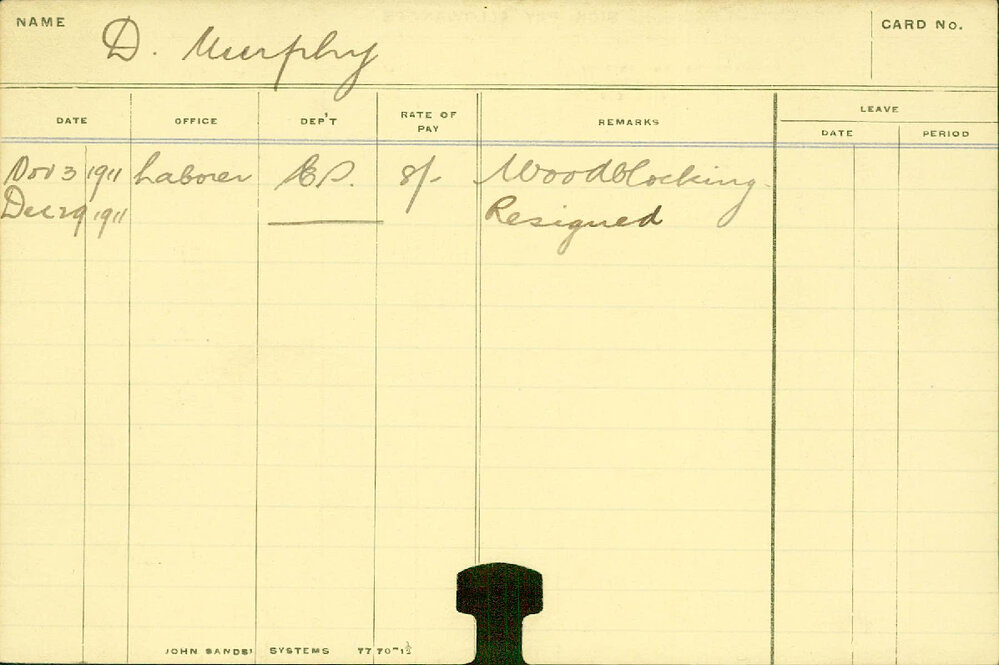 NAME D. Murphy CARD No.
DATE OFFICE DEP'T RATE OF PAY REMARKS LEAVE
DATE PERIOD
Nov 3 1911 Laborer 8/- Woodblocking
Dec 29 1911 Resigned
JOHN SANDS' SYSTEMS